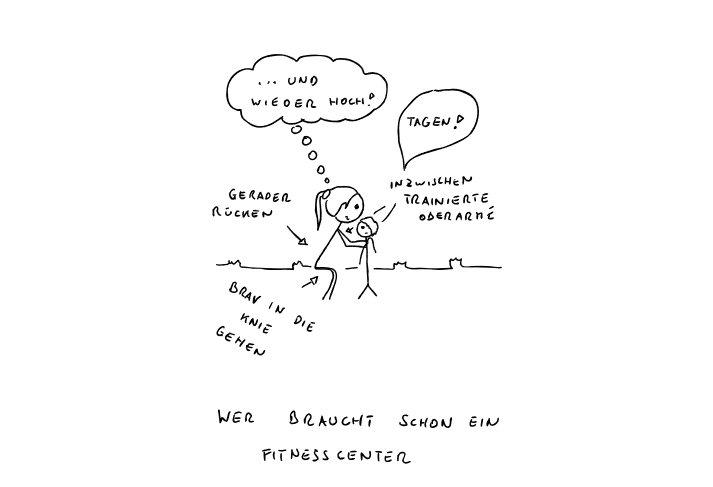 ... UND
WIEDER HOCH!
TAGEN!
INZWISCHEN
TRAINIERTE
ODERARME
GERADER
RÜCKEN
BRAV IN DIE
KNIE
GEHEN
WER BRAUCHT SCHON EIN
FITNESSCENTER